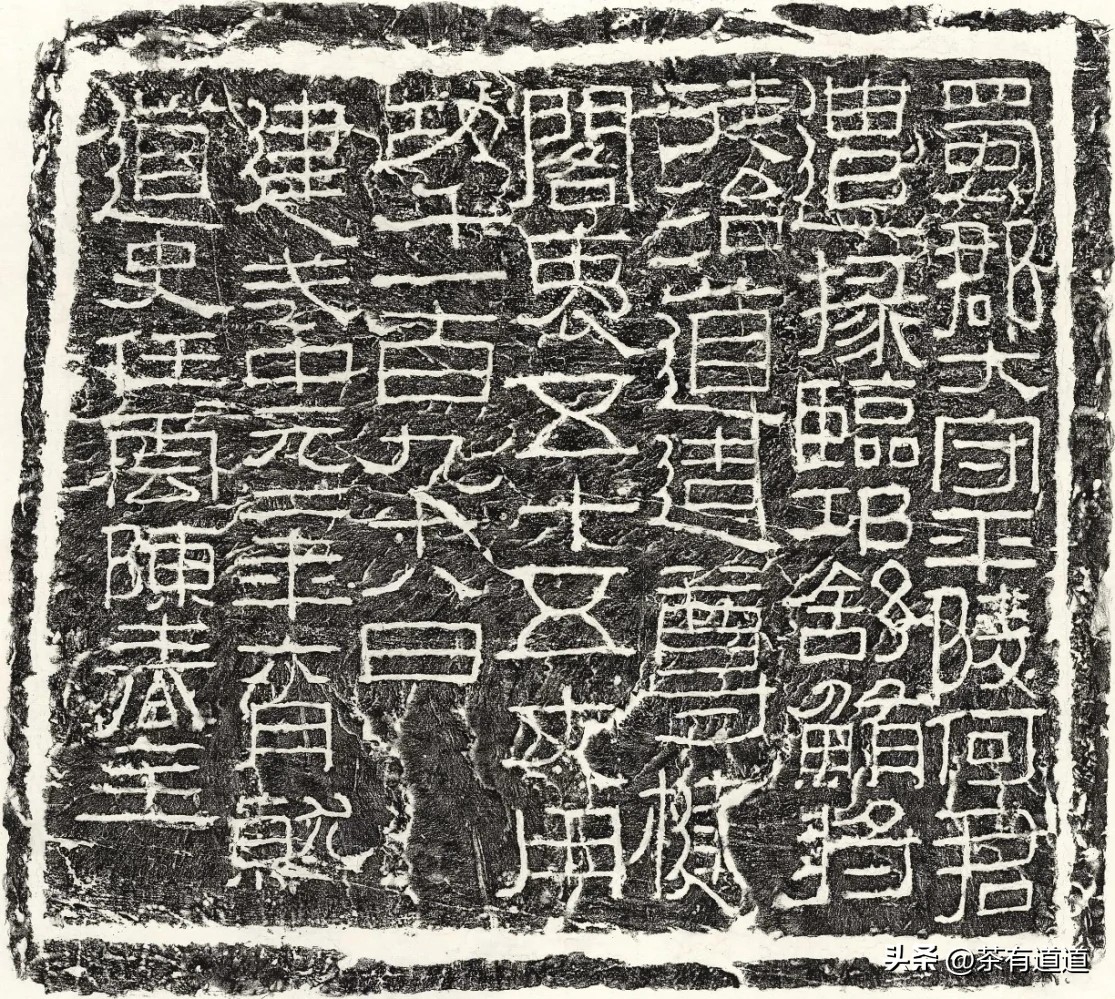 蜀郡大守平陵何君
遣掾臨邛舒鮪將
徒治道造尊楗
閣袤五十五丈用
功千一百九十八日
建武中元二年六月就
道史任雲陳春主
头条 @茶有道道